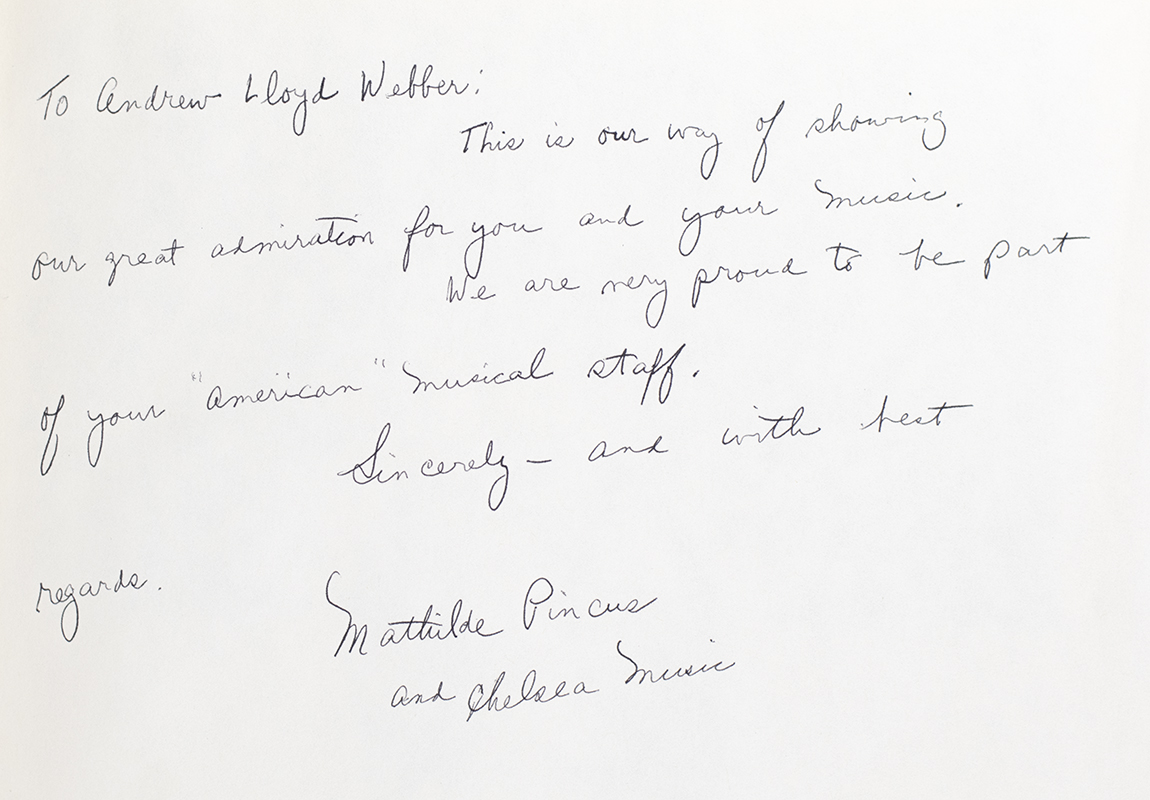 To Andrew Lloyd Webber:
This is our way of showing
our great admiration for you and your music.
We are very proud to be part
of your "American" musical staff.
Sincerely – and with best
regards.
Mathilde Pincus
and Chelsea Music